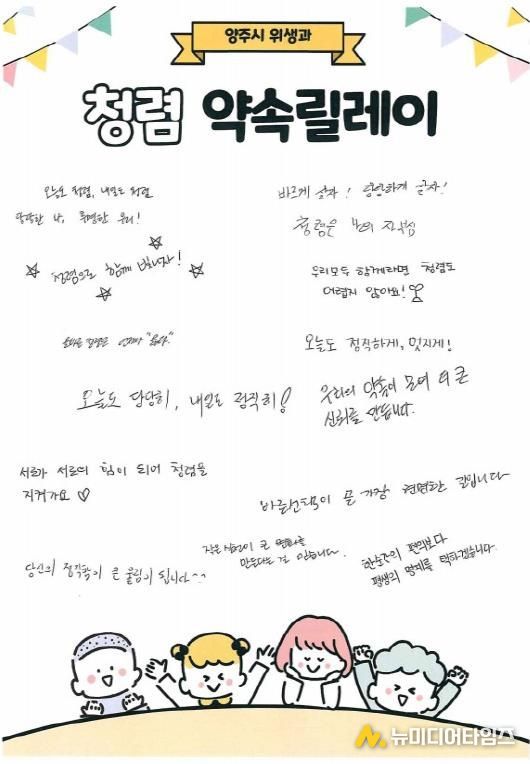 양주시 위생과
청렴 약속릴레이
오늘도 청렴, 내일도 청렴
당당한 나, 투명한 우리!
바르게 살자! 당당하게 살자!
청렴은 나의 자존심
청렴으로 함께 빛나자!
우리모두 함께라면 청렴도
어렵지 않아요!
오늘도 정직하게, 멋지게!
오늘도 당당히, 내일도 정직히!
우리의 약속이 모여 더 큰
신뢰를 만듭니다.
서로가 서로의 힘이 되어 청렴을
지켜가요 ♡
바른선택이 곧 가장 현명한 길입니다
작은 실천이 큰 변화를
만든다는 걸 믿습니다.
당신의 정직함이 큰 울림이 됩니다^^
한순간의 편의보다
평생의 명예를 택하겠습니다.
뉴미디어타임즈